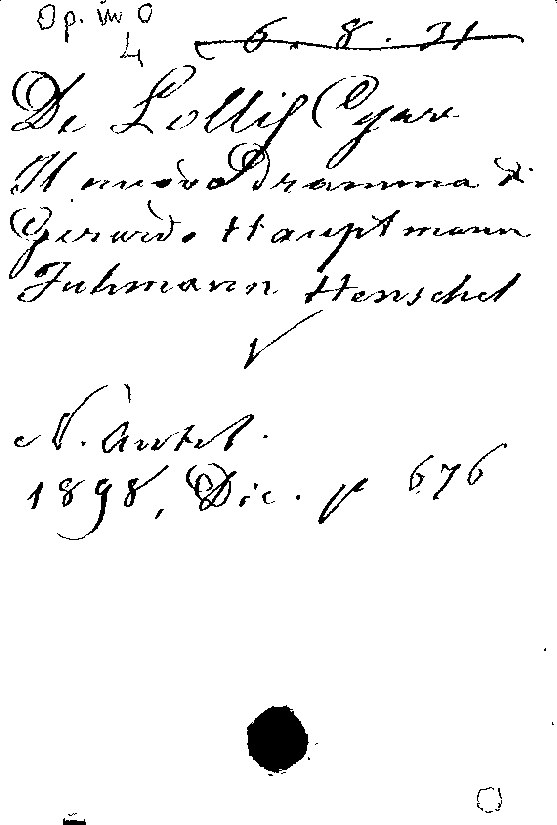 Op. in O
4
6. 8. 31
De Lollis Cesare
Il nuovo Dramma di
Gerardo Hauptmann
Fuhrmann Henschel
N. Antol.
1898, Dic. p 676